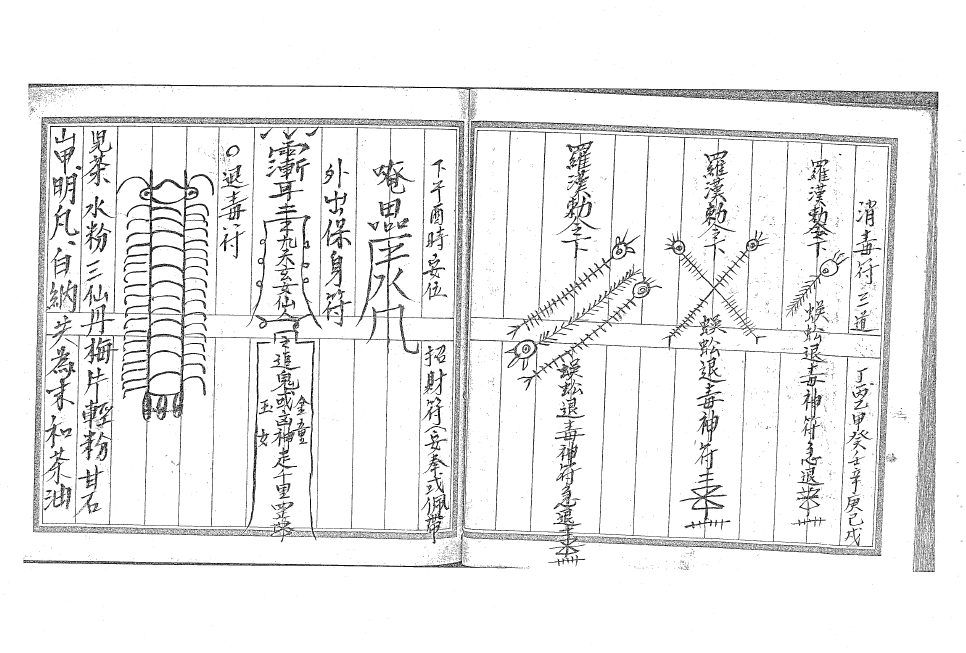 消毒符三道
丁丙乙甲癸壬辛庚己戊
羅漢勅令下
蜈蚣退毒神符急退
羅漢勅令下
蜈蚣退毒神符
羅漢勅令下
蜈蚣退毒神符急退
下午酉時安位
招財符安奉或佩帶
唵
外出保身符
漸耳
九天玄女仙
追鬼或凶神走千里
金童
玉女
退毒符
児茶水粉三仙丹梅片輕粉甘石
山甲明凡白納共為末和茶油